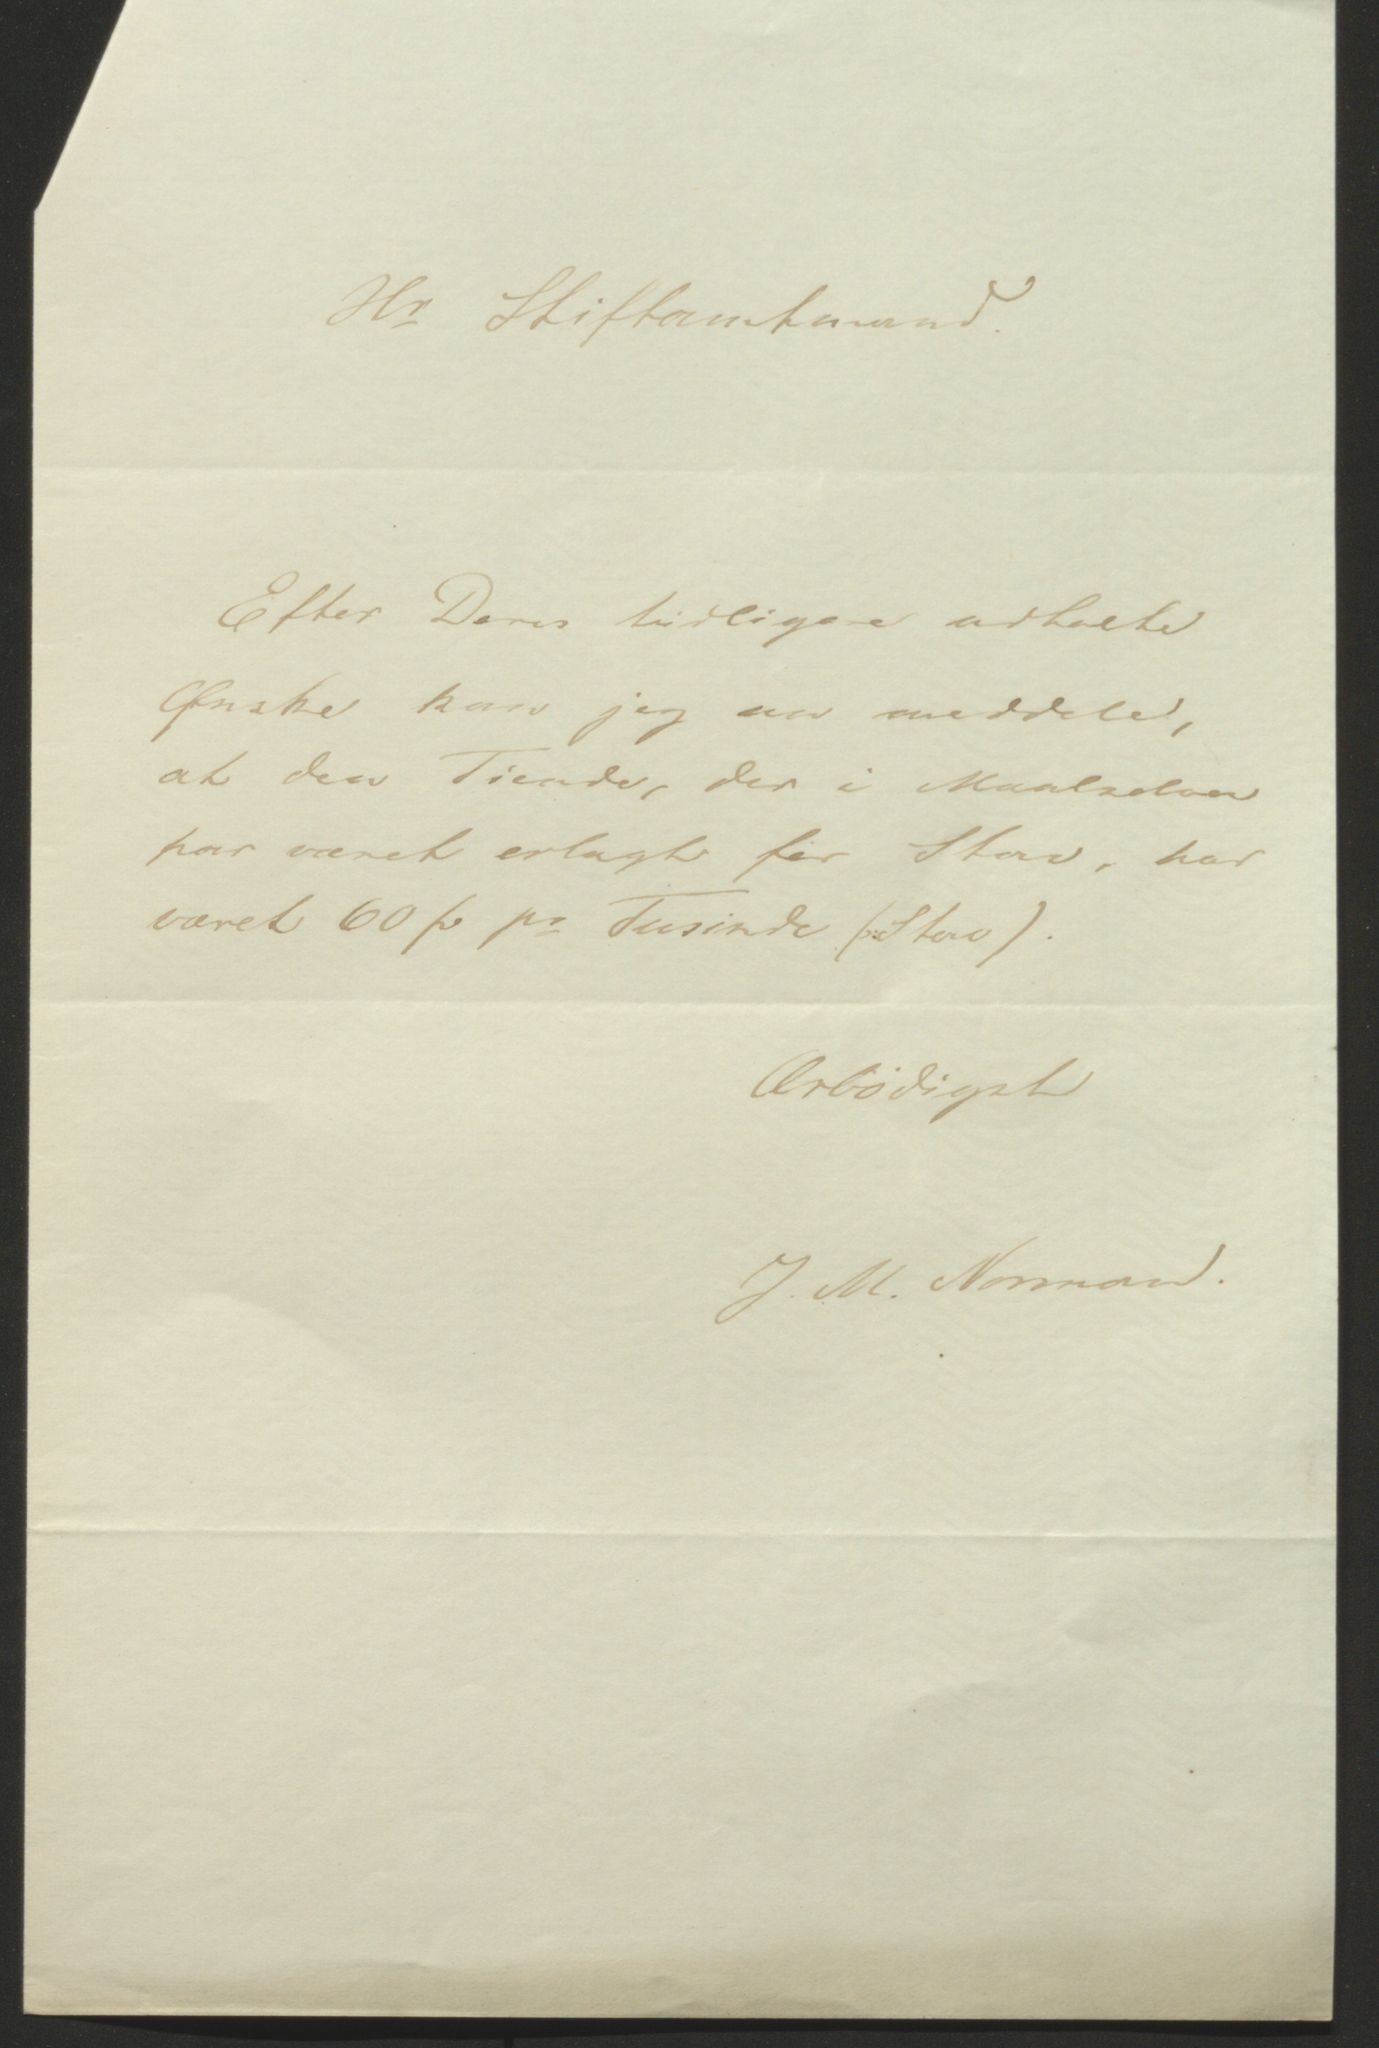 Hr Stiftamtmand.
Efter Deres tidligere udtalte
Ønske kan jeg nu meddele,
at den Tiende, der i Maalselven
har været erlagt for Stav, har
været 60 ß pr Tusinde (: Stav).
Ærbödigst
J. M. Norman.